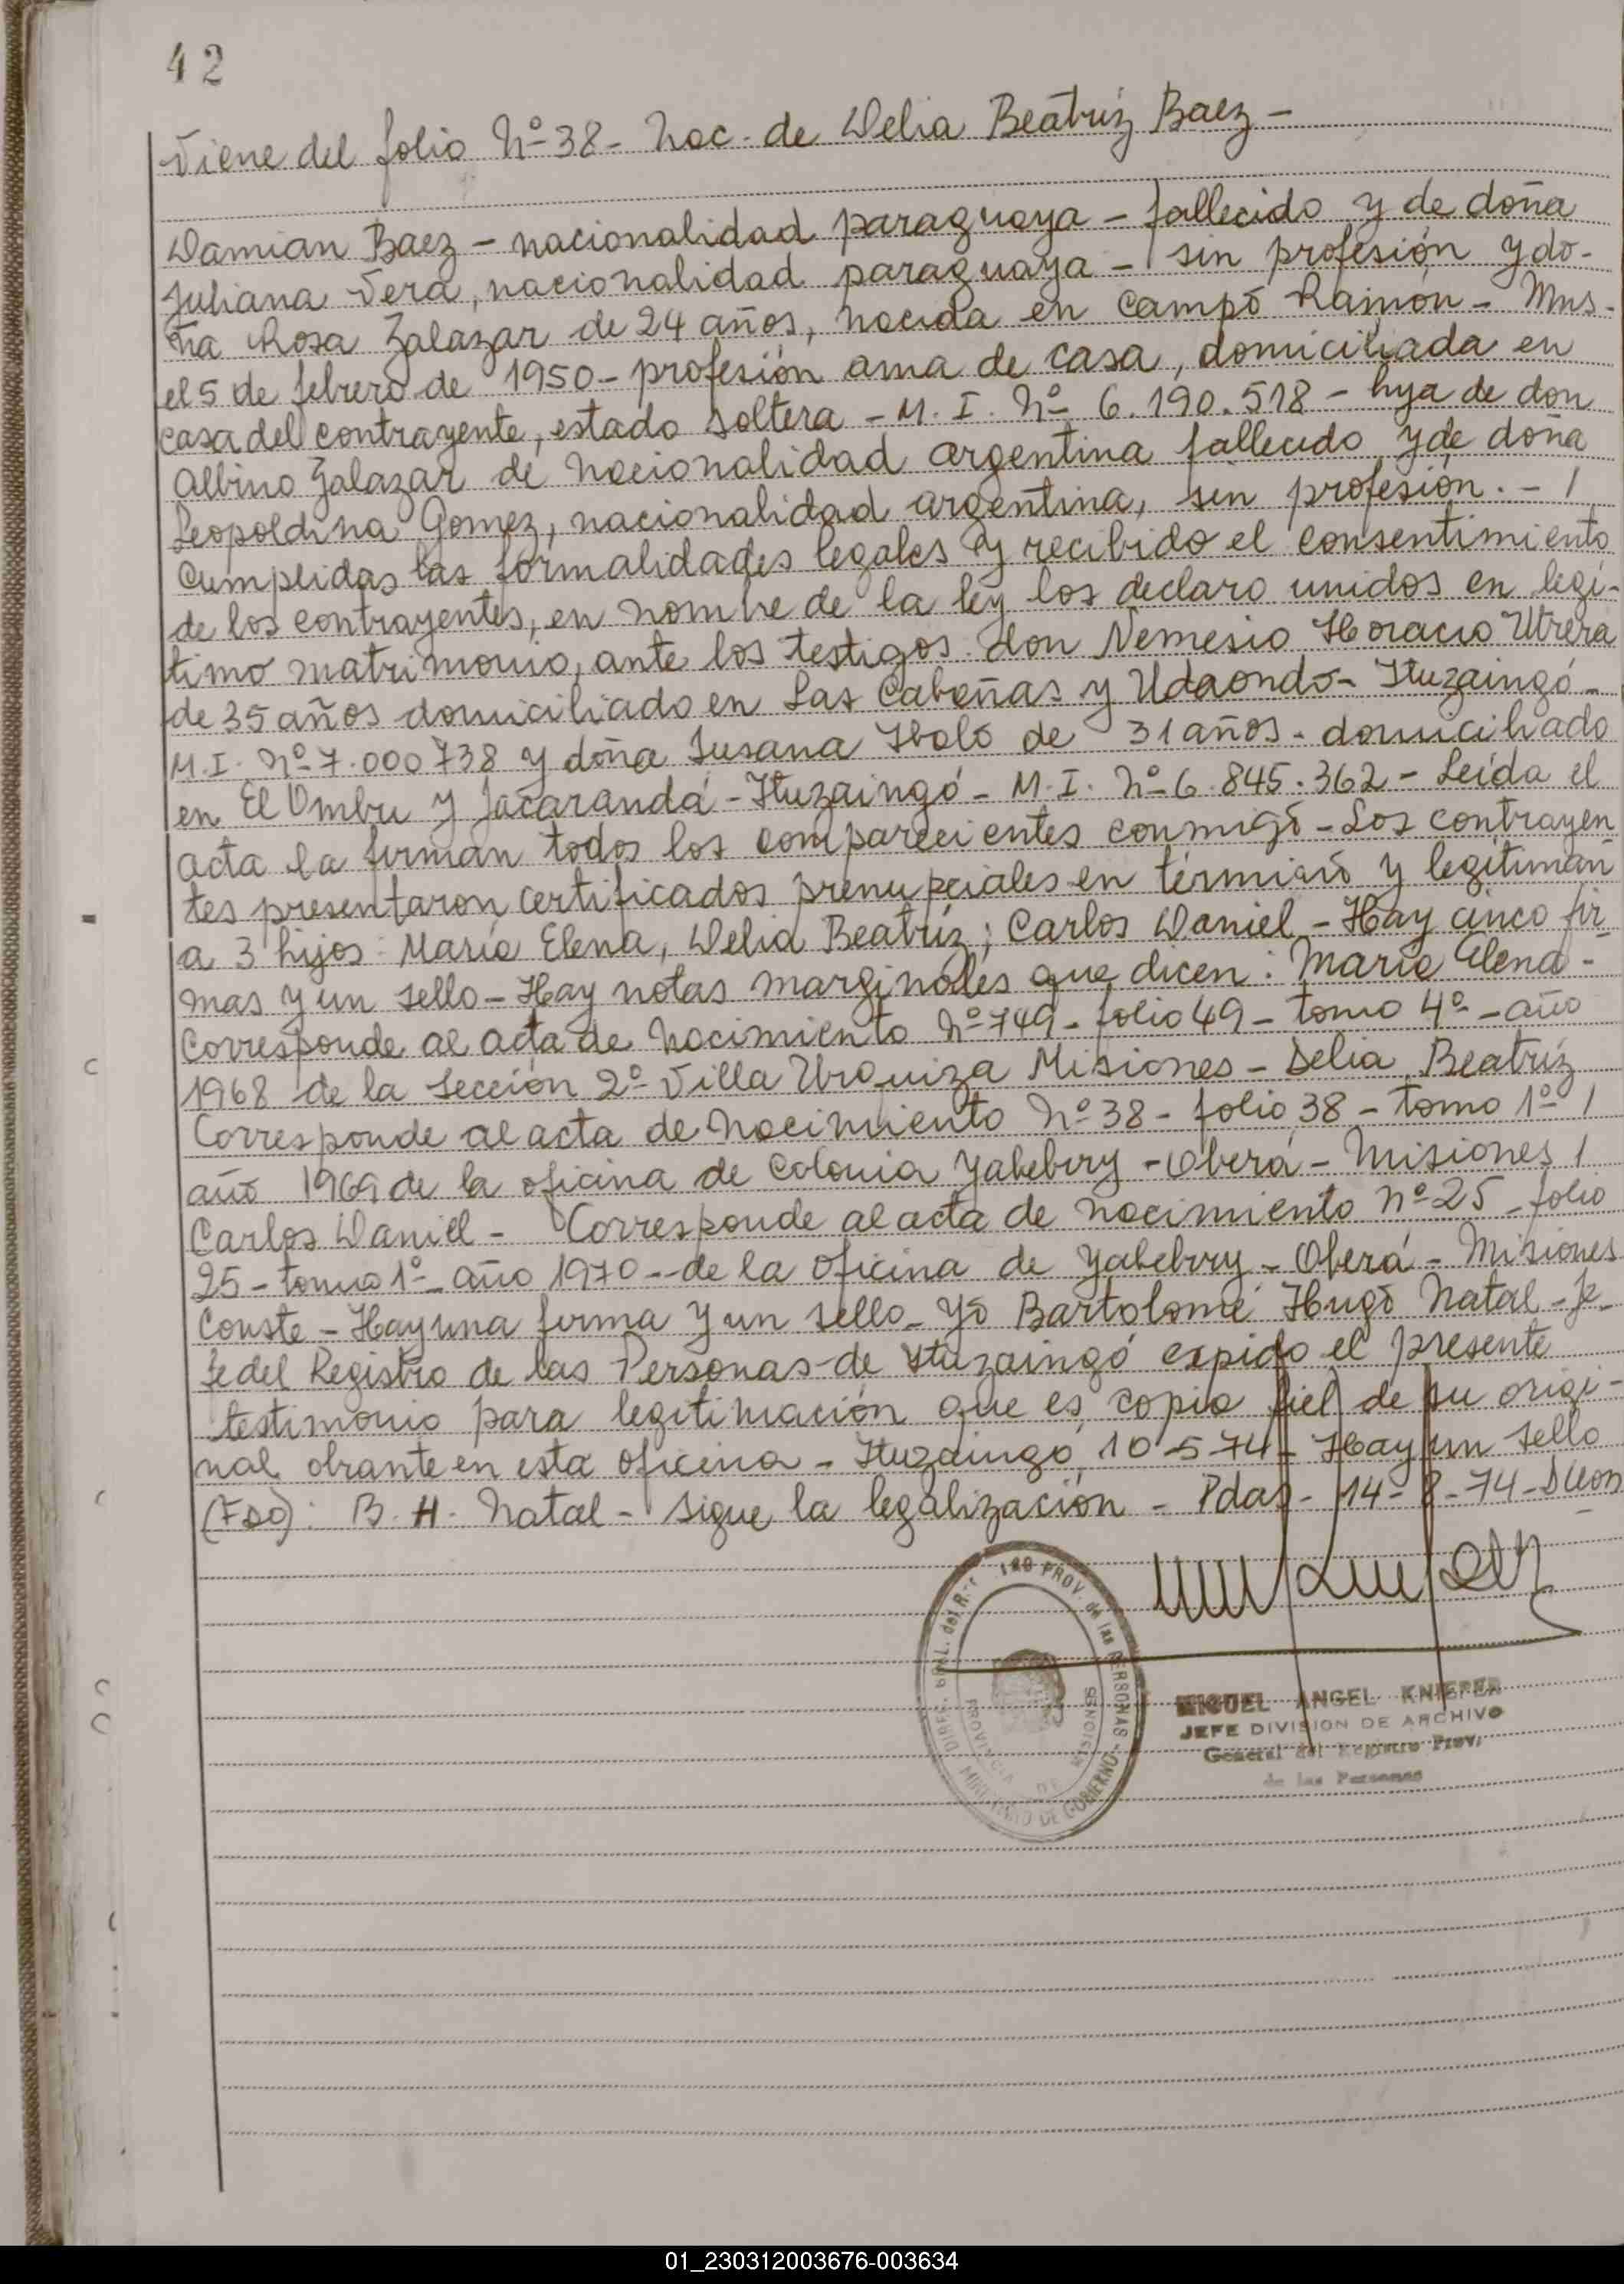 42
Viene del folio Nº 38 - Nac. de Delia Beatríz Baez -
Damian Baez - nacionalidad paraguaya - fallecido y de doña
Juliana Vera, nacionalidad paraguaya - sin profesión y do-
ña Rosa Zalazar de 24 años, nacida en Campo Ramón - Mns -
el 5 de febrero de 1950 - profesión ama de casa, domiciliada en
casa del contrayente, estado soltera - M. I. Nº 6.190.518 - hija de don
Albino Zalazar de nacionalidad argentina fallecido y de doña
Leopoldina Gomez, nacionalidad argentina, sin profesión. - /
Cumplidas las formalidades legales y recibido el consentimiento
de los contrayentes, en nombre de la ley los declaro unidos en legí-
timo matrimonio, ante los testigos don Nemesio Horacio Utrera
de 35 años domiciliado en Las Cabañas y Udaondo - Ituzaingó -
M.I. Nº 7.000738 y doña Susana de 31 años - domiciliado
en El Ombu y Jacarandá - Ituzaingó - M.I. Nº 6.845.362 - Leída el
acta la firman todos los comparecientes conmigo - Los contrayen
tes presentaron certificados prenupciales en término y legitiman
a 3 hijos: María Elena, Delia Beatríz; Carlos Daniel - Hay cinco fir
mas y un sello - Hay notas marginales que dicen: María Elena -
Corresponde al acta de nacimiento Nº 749 - folio 49 - tomo 4º - año
1968 de la sección 2º Villa Urquiza Misiones - Delia Beatríz
Corresponde al acta de nacimiento Nº 38 - folio 38 - tomo 1º /
año 1969 de la oficina de Colonia Yabebiry - Oberá - Misiones /
Carlos Daniel - Corresponde al acta de nacimiento Nº 25 - folio
25 - tomo 1º - año 1970 - de la oficina de Yabebiry - Oberá - Misiones
Conste - Hay una firma y un sello - Yo Bartolomé Hugo Natal - Je
fe del Registro de las Personas de Ituzaingó expido el presente
testimonio para legitimación que es copia fiel de su origi-
nal obrante en esta oficina - Ituzaingó 10-5-74 - Hay un sello
(Fdo): B. H. Natal - Sigue la legalización - Pdas - 14-8-74 -
PROV. de las PERSONAS
PROVINCIA DE MISIONES
MINISTERIO DE GOBIERNO
MIGUEL ANGEL KNIEPER
JEFE DIVISION DE ARCHIVO
General del Registro Prov.
de las Personas
01_230312003676-003634